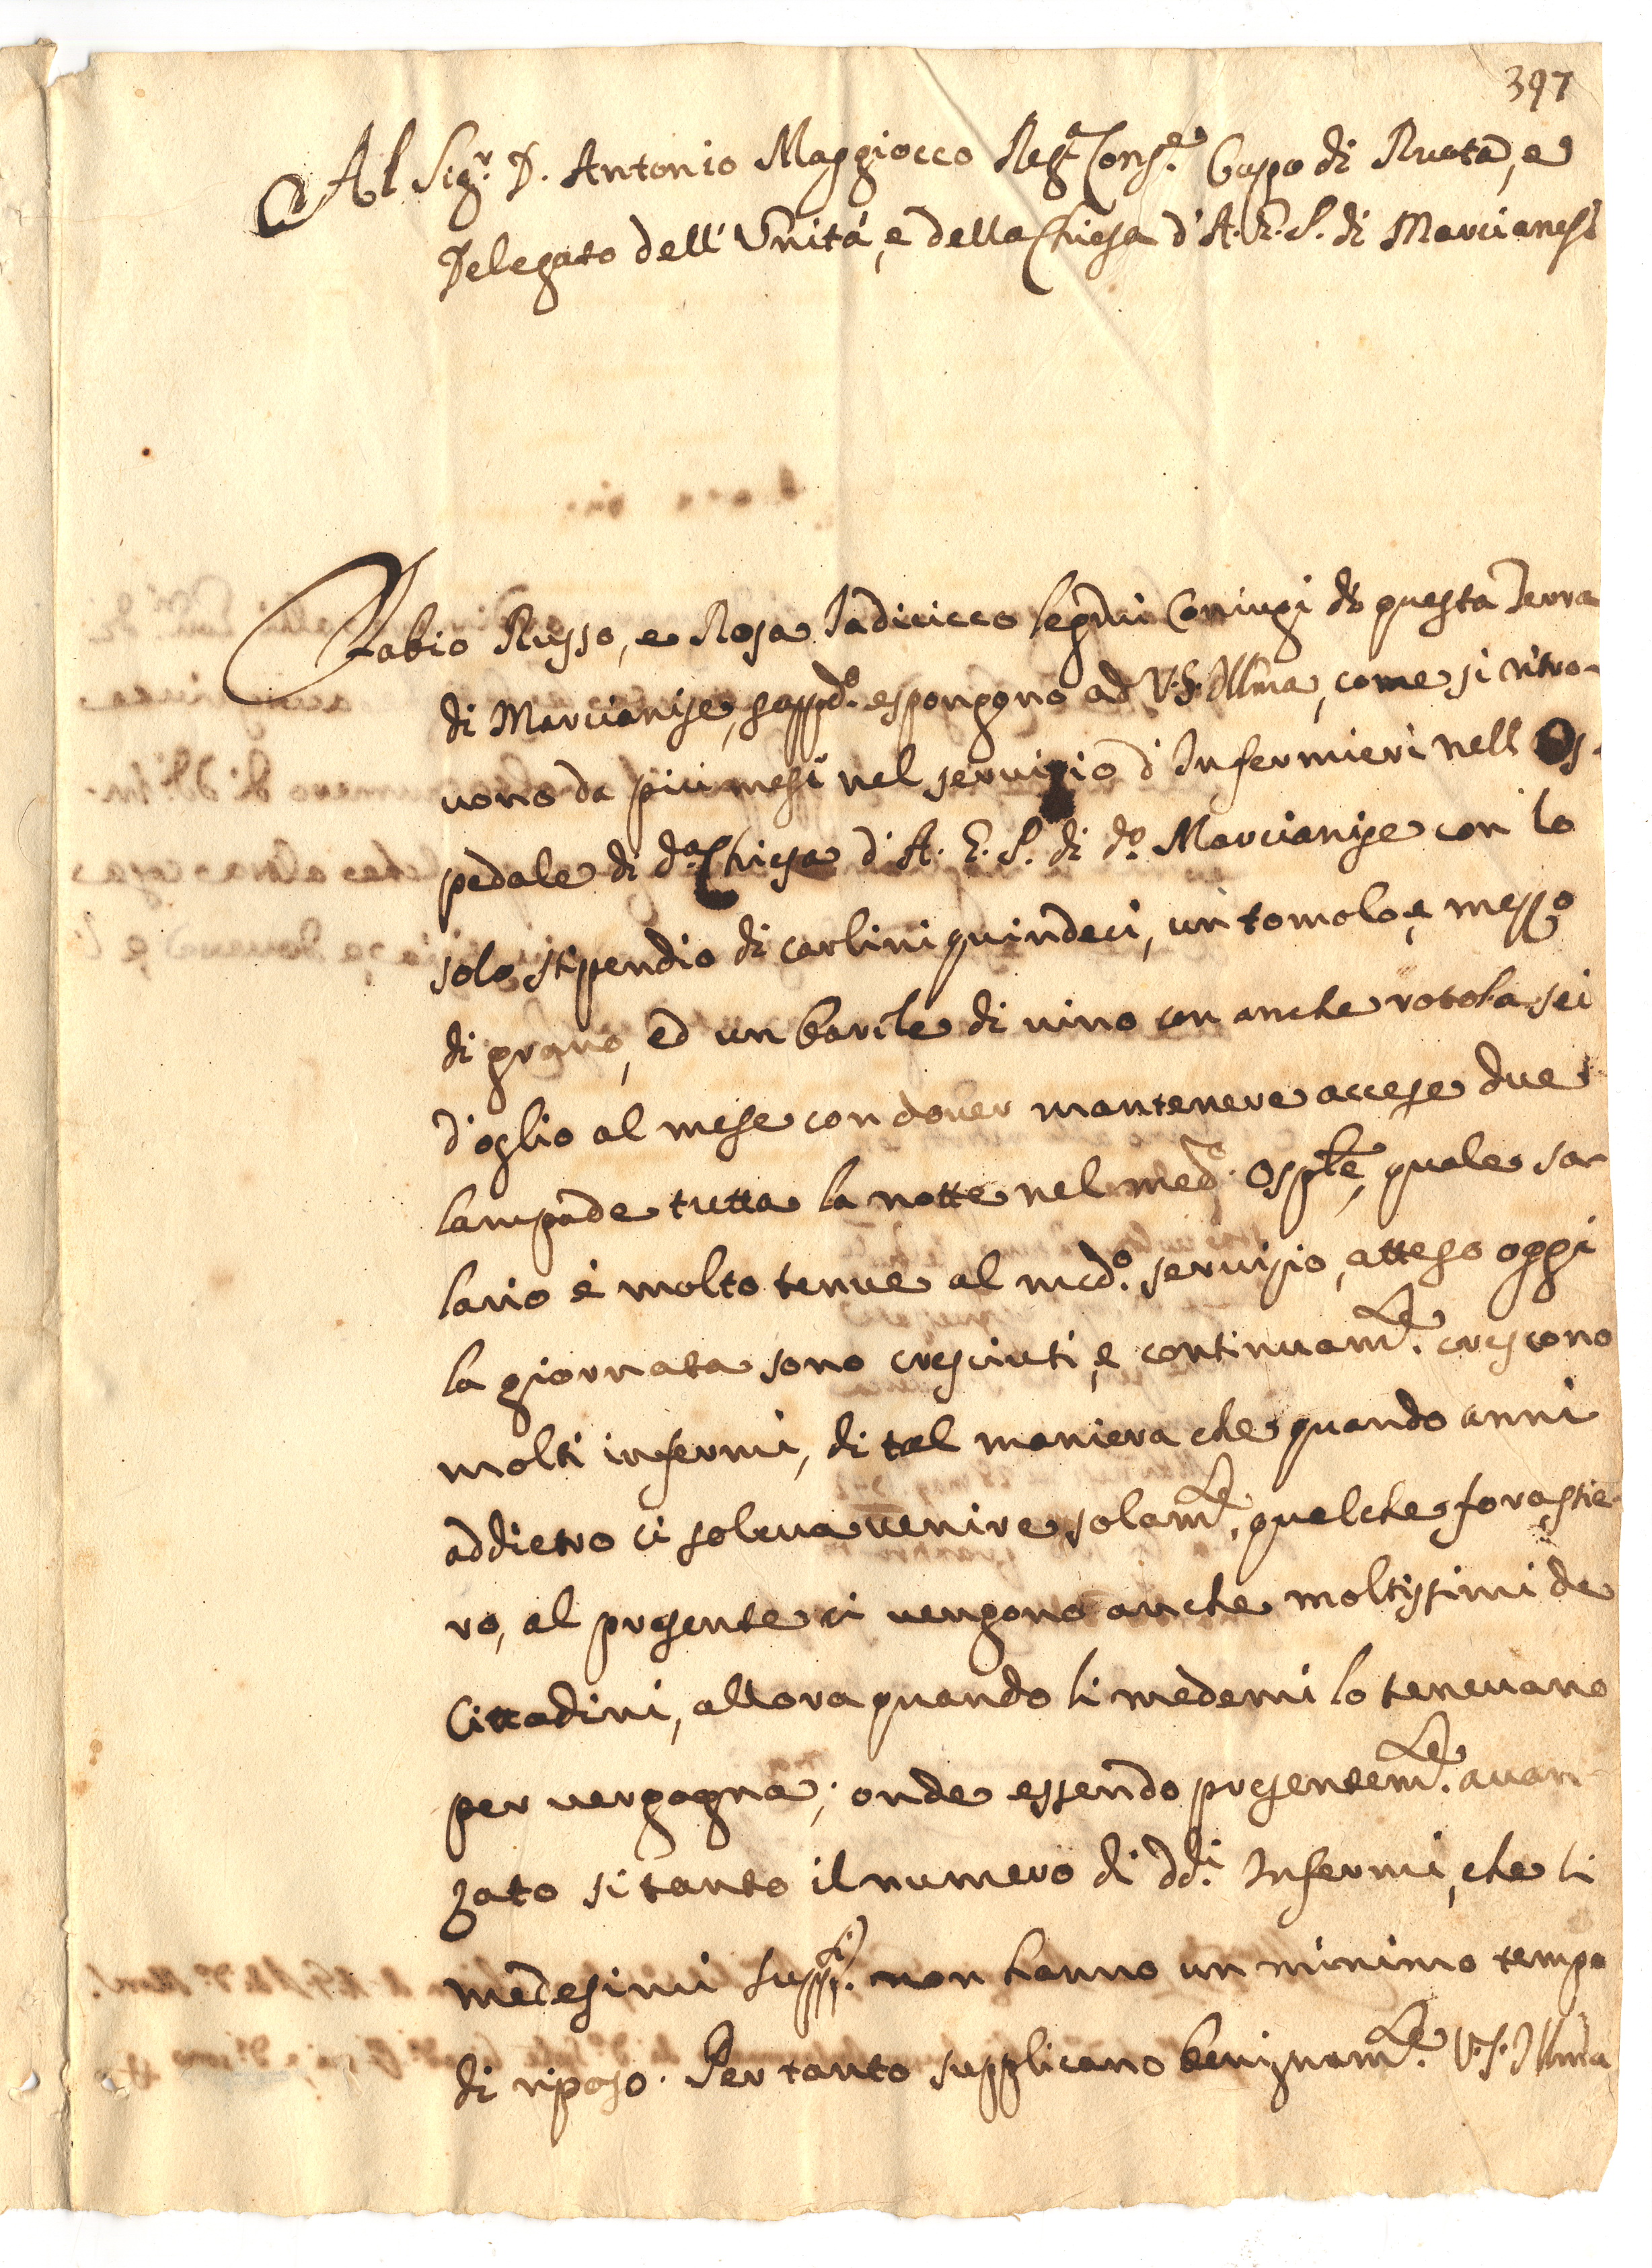 397
Al Sig.r D. Antonio Maggiocco Reg.a Cons.e Capo di Ruota, e
Delegato dell'Unitá, e della Chiesa d'A. G. P. di Marcianesi
Fabio Russo, e Rosa Iadicicco legmi Coniugi di questa Terra
di Marcianise, supp.do espongono ad V.S. Illma, come si ritro-
vono da piu mesi nel servizio d'Infermieri nell Os-
pedale di d.a Chiesa d'A. G. P. di d.o Marcianise con lo
solo stipendio di carlini quindeci, un tomolo, e mezzo
di grano, ed un barile di vino con anche rotola sei
d'oglio al mese con dover mantenere accese due
lampade tutta la notte nel med.o Osp.le, quale sa-
lario è molto tenue al med.o servizio, atteso oggi
la giornata sono cresciuti, e continuam.te crescono
molti infermi, di tal maniera che quando anni
addietro ci soleva venire solam.te qualche forastie-
ro, al presente ci vengono anche moltissimi de
Cittadini, allora quando li medemi lo tenevano
per vergogna; onde essendo presentem.te avan-
zato si tanto il numero di dd.i Infermi, che li
medesimi supp.ti non hanno un minimo tempo
di riposo. Per tanto supplicano benignam.te V.S. Illma